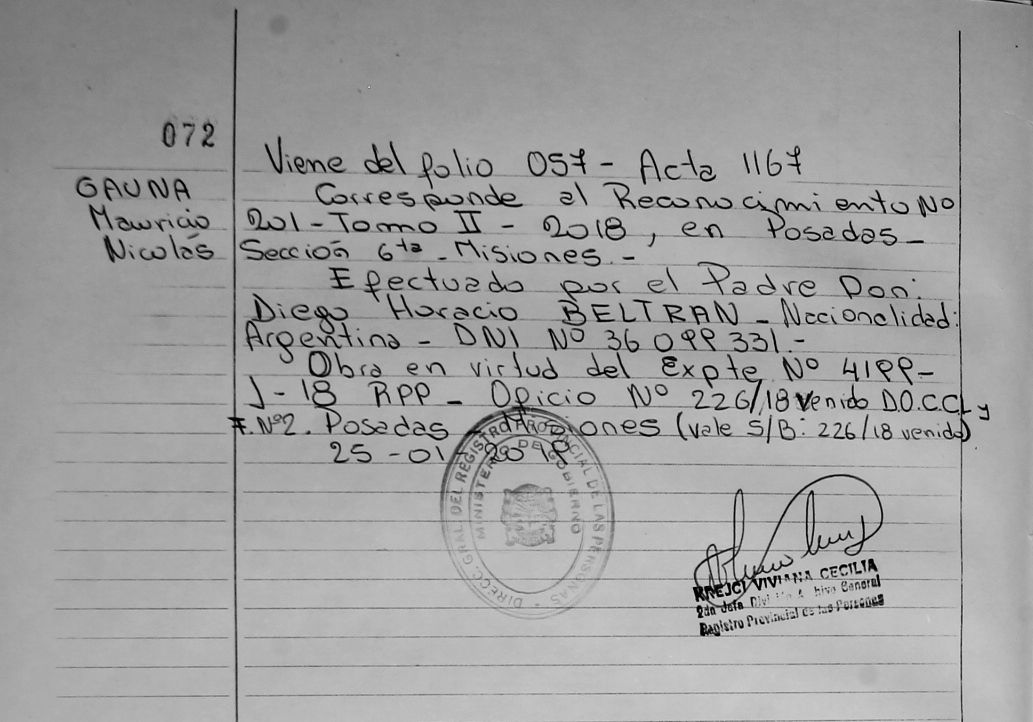 072
GAUNA
Mauricio
Nicolás
Viene del folio 057 - Acta 1167
Corresponde al Reconocimiento No
201 - Tomo II - 2018, en Posadas -
Sección 6ta - Misiones -
Efectuado por el Padre Don:
Diego Horacio BELTRAN - Nacionalidad:
Argentina - DNI Nº 36099331.-
Obra en virtud del Expte Nº 4199-
J-18 RPP - Oficio Nº 226/18 venido D.O.C.C.L y
F. Nº2. Posadas - Misiones (vale S/B: 226/18 venido)
25-01-2019
DIRECC. GRAL. DEL REGISTRO PROVINCIAL DE LAS PERSONAS
MINISTERIO DE GOBIERNO
KREJCI VIVIANA CECILIA
2da Jefa División Archivo General
Registro Provincial de las Personas